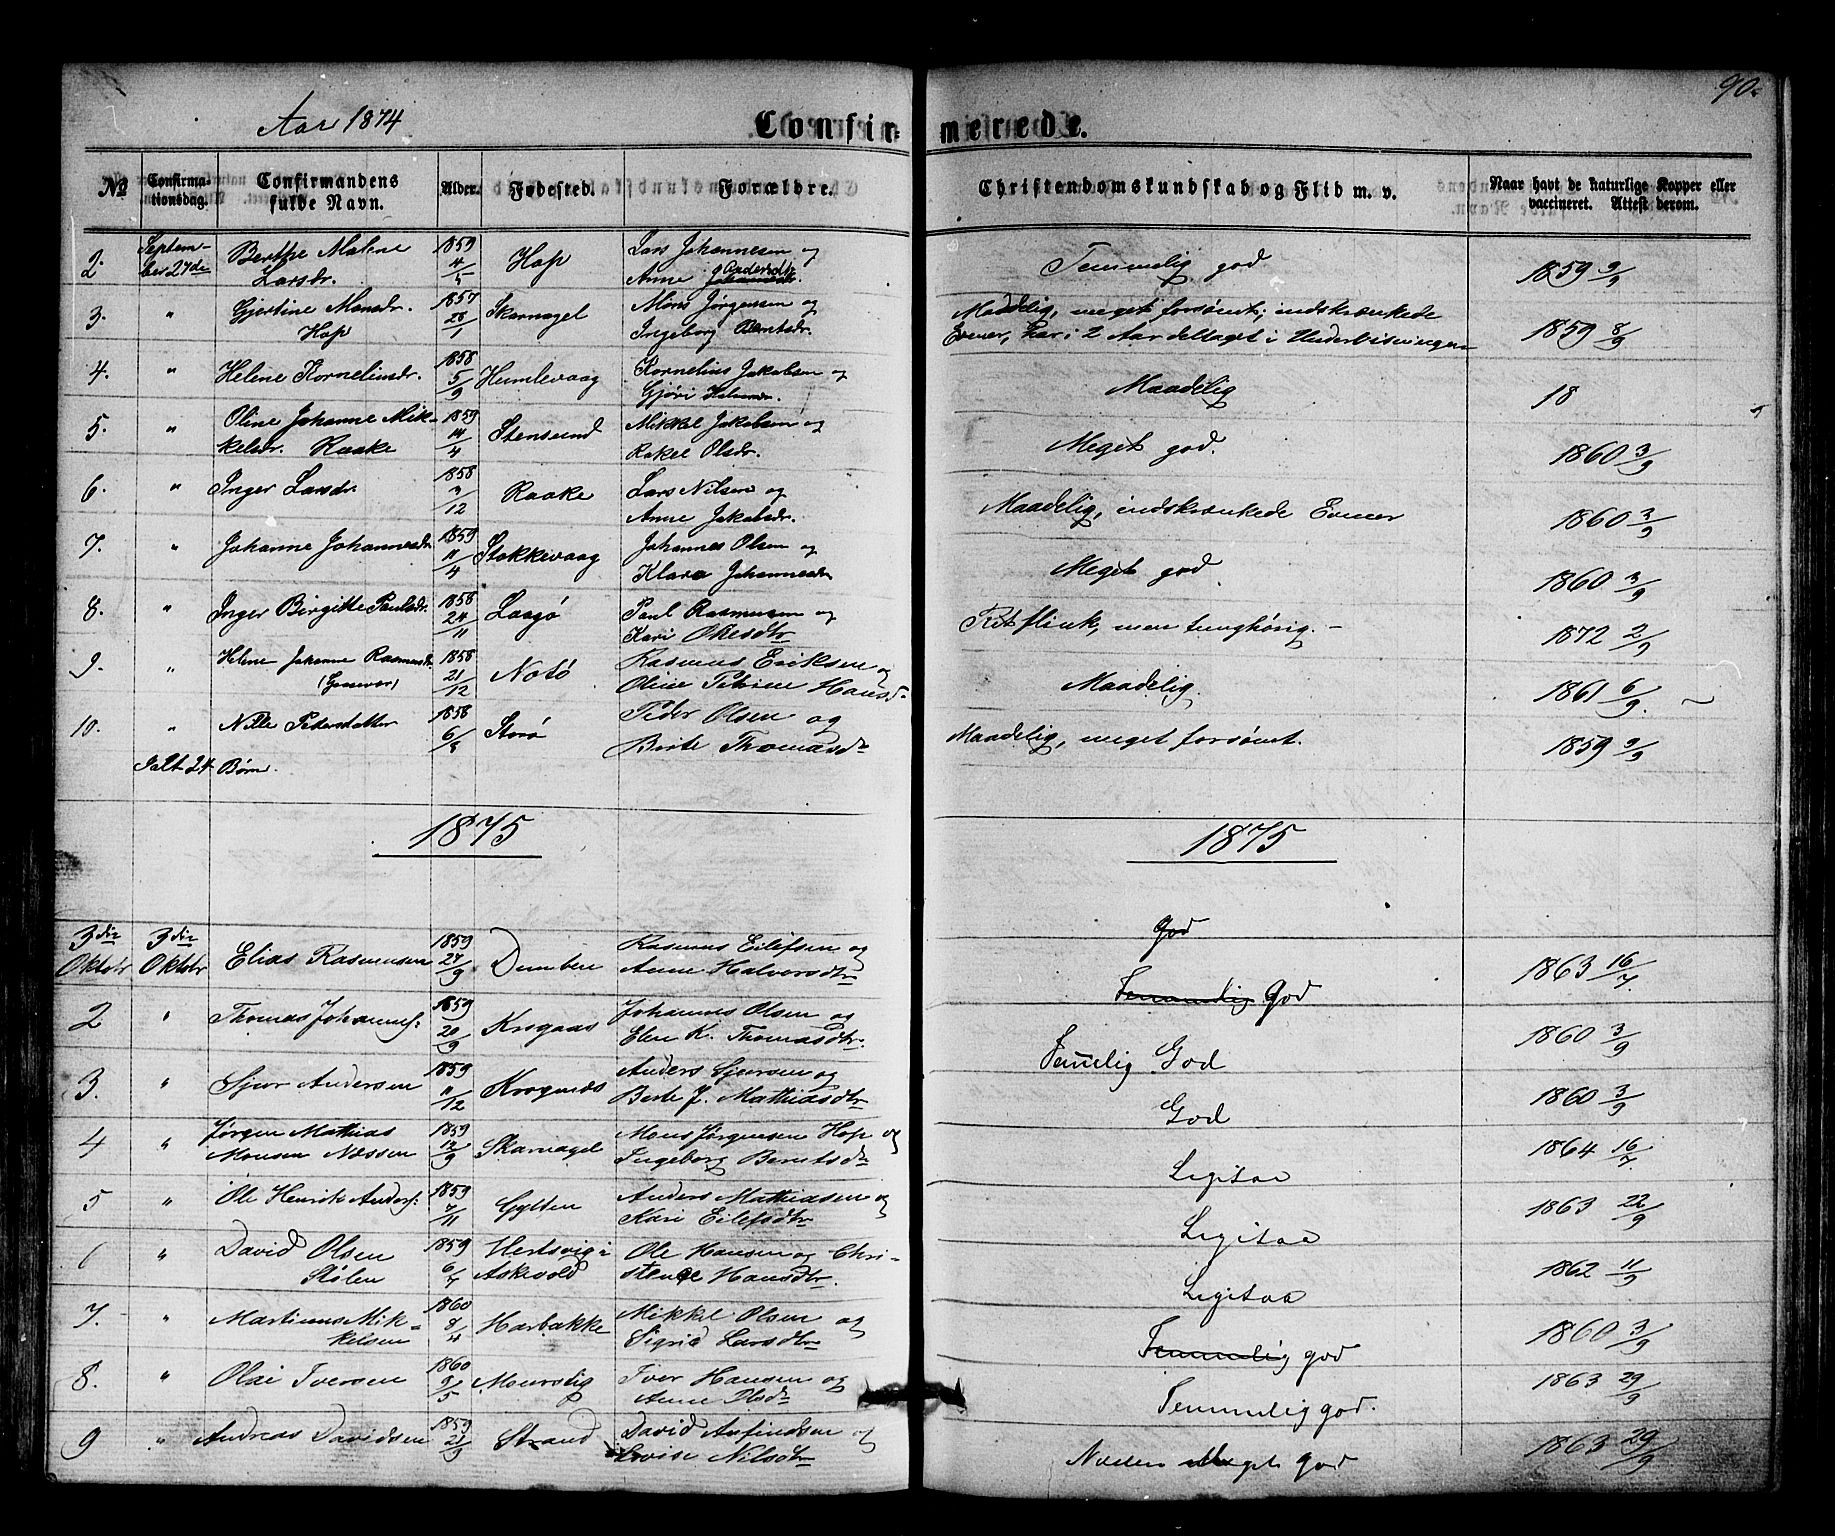 90.
Aar 1874
Confir-
merede.
No
Confirma-
tionsdag.
Confirmandens
fulde Navn.
Alder.
Fødested.
Forældre.
Christendomskundskab og Flid m. v.
Naar havt de naturlige Kopper eller
vaccineret. Attest derom.
2. Septem- Berthe Maline 1859 Hop Lars Johannesen og Temmelig god 1859 9/9
ber 27de Larsdr. 4/5 Anne Andersdtr.
3. " Gjertine Monsdr. 1857 Skarnagel Mons Jørgensen og Maadelig, meget forsømt; indskrænkede 1859 8/9
Hop 28/1 Ingeborg Berntsdr. Evner, har i 2 Aar deltaget i Undervisningen
4. " Helene Korneliusdr. 1858 Humlevaag Kornelius Jakobsen og Maadelig 18
5/9 Gjøri
5. " Oline Johanne Mik- 1859 Stensund Mikkel Jakobsen og Meget god. 1860 3/9
kelsdr. Raake 14/4 Rakel Olsdr.
6. " Inger Larsdr. 1858 Raake Lars Nilsen og Maadelig, indskrænkede Evner 1860 3/9
3/12 Anne Jakobsdr.
7. " Johanne Johannesdr 1859 Stokkevaag Johannes Olsen og Meget god. 1860 3/9
11/4 Klara Johannesdr
8. " Inger Birgitte Paulsdr. 1858 Laagø Paul Rasmusen og Ret flink, men tunghørig. - 1872 2/9
24/11 Kari Okesdtr
9. " Helene Johanne Rasmusdr. 1858 Notø Rasmus Eriksen og Maadelig. 1861 6/9.
21/12 Oline Petrine Hansd.
10. " Nille Pedersdatter 1858 Storø Peder Olsen og Maadelig, meget forsømt. 1859 9/9
6/8 Berte Thomasdr
Ialt 24 Børn.
1875
1875
3die 3die Elias Rasmusen 1859 Dumben Rasmus Eilefsen og god 1863 16/7
Oktobr Oktobr 24/9 Anne Halvorsdtr
2 " Thomas Johannes: 1859 Krogaas Johannes Olsen og Temmelig God 1860 3/9
20/9 Elen K. Thomasdtr.
3. " Sjur Andersen 1859 Krognæs Anders Sjursen og Temelig God 1860 3/9
11/12 Berte J. Mathiasdtr
4 " Jørgen Mathias 1859 Skarnagel Mons Jørgensen Hop og God 1864 16/7
Monsen Næssen 12/9 Ingeborg Berntsdr
5 " Ole Henrik Anders: 1859 Gylten Anders Mathiasen og Ligesaa 1863 22/9
7/11 Kari Eilefsdtr
6 " David Olsen 1859 Hertsvig i Ole Hansen og Chri- Ligesaa 1862 11/9
Stølen 6/7 Askevold stence Hansdtr.
7. " Martinus Mik- 1860 Harbakke Mikkel Olsen og Ligesaa 1860 3/9
kelsen 8/4 Sigrid Larsdtr
8. " Olai Iversen 1860 Iver Hansen og Temmelig god 1863 29/9
9/5 Anne Olsdr
9 " Andreas Davidsen 1859 Strand David Anfindsen og Temmelig god. 1863 29/9
21/9 Lovise Nilsdtr
Næsten Meget god